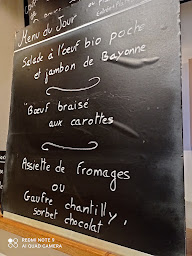 Menu du Jour
Salade à l'œuf bio poché
et jambon de Bayonne
Bœuf braisé
aux carottes
Assiette de fromages
ou
Gaufre chantilly,
sorbet chocolat
REDMI NOTE 9
AI QUAD CAMERA